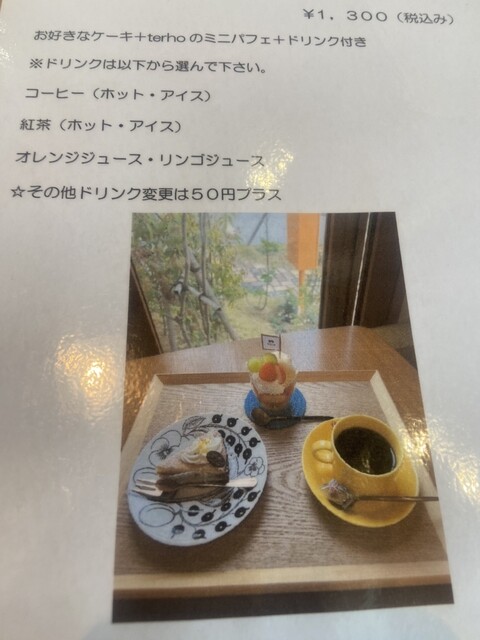 ￥１，３００（税込み）
お好きなケーキ＋terhoのミニパフェ＋ドリンク付き
※ドリンクは以下から選んで下さい。
コーヒー（ホット・アイス）
紅茶（ホット・アイス）
オレンジジュース・リンゴジュース
☆その他ドリンク変更は５０円プラス